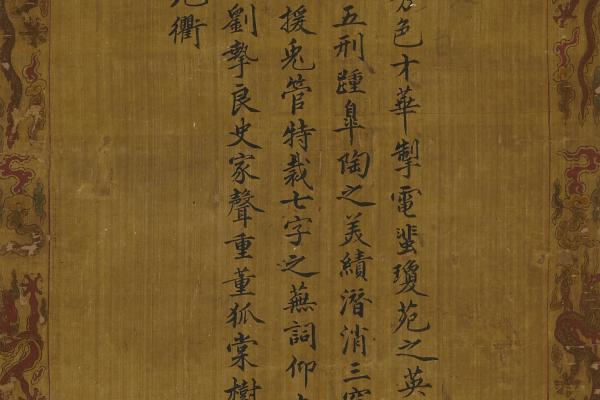 色才華掣電蜚瓊苑之英
五刑踵臯陶之美績潛消三
援兎管特裁七字之蕪詞仰
劉摯良史家聲重董狐棠樹
衢